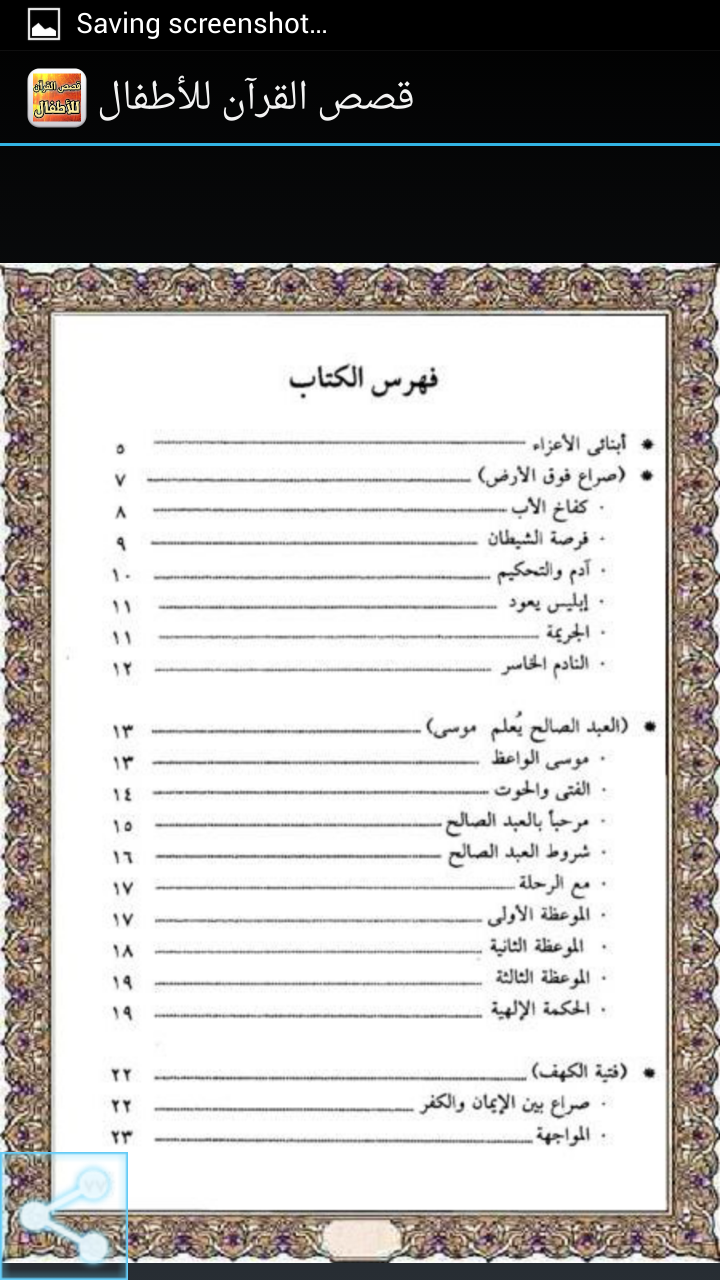 Saving screenshot...
قصص القرآن للأطفال
قصص القرآن
للأطفال
فهرس الكتاب
* أبنائى الأعزاء ٥
* (صراع فوق الأرض) ٧
· كفاخ الأب ٨
· فرصة الشيطان ٩
· آدم والتحكيم ١٠
· إبليس يعود ١١
· الجريمة ١١
· النادم الخاسر ١٢
* (العبد الصالح يُعلم موسى) ١٣
· موسى الواعظ ١٣
· الفتى والحوت ١٤
· مرحباً بالعبد الصالح ١٥
· شروط العبد الصالح ١٦
· مع الرحلة ١٧
· الموعظة الأولى ١٧
· الموعظة الثانية ١٨
· الموعظة الثالثة ١٩
· الحكمة الإلهية ١٩
* (فتية الكهف) ٢٢
· صراع بين الإيمان والكفر ٢٢
· المواجهة ٢٣